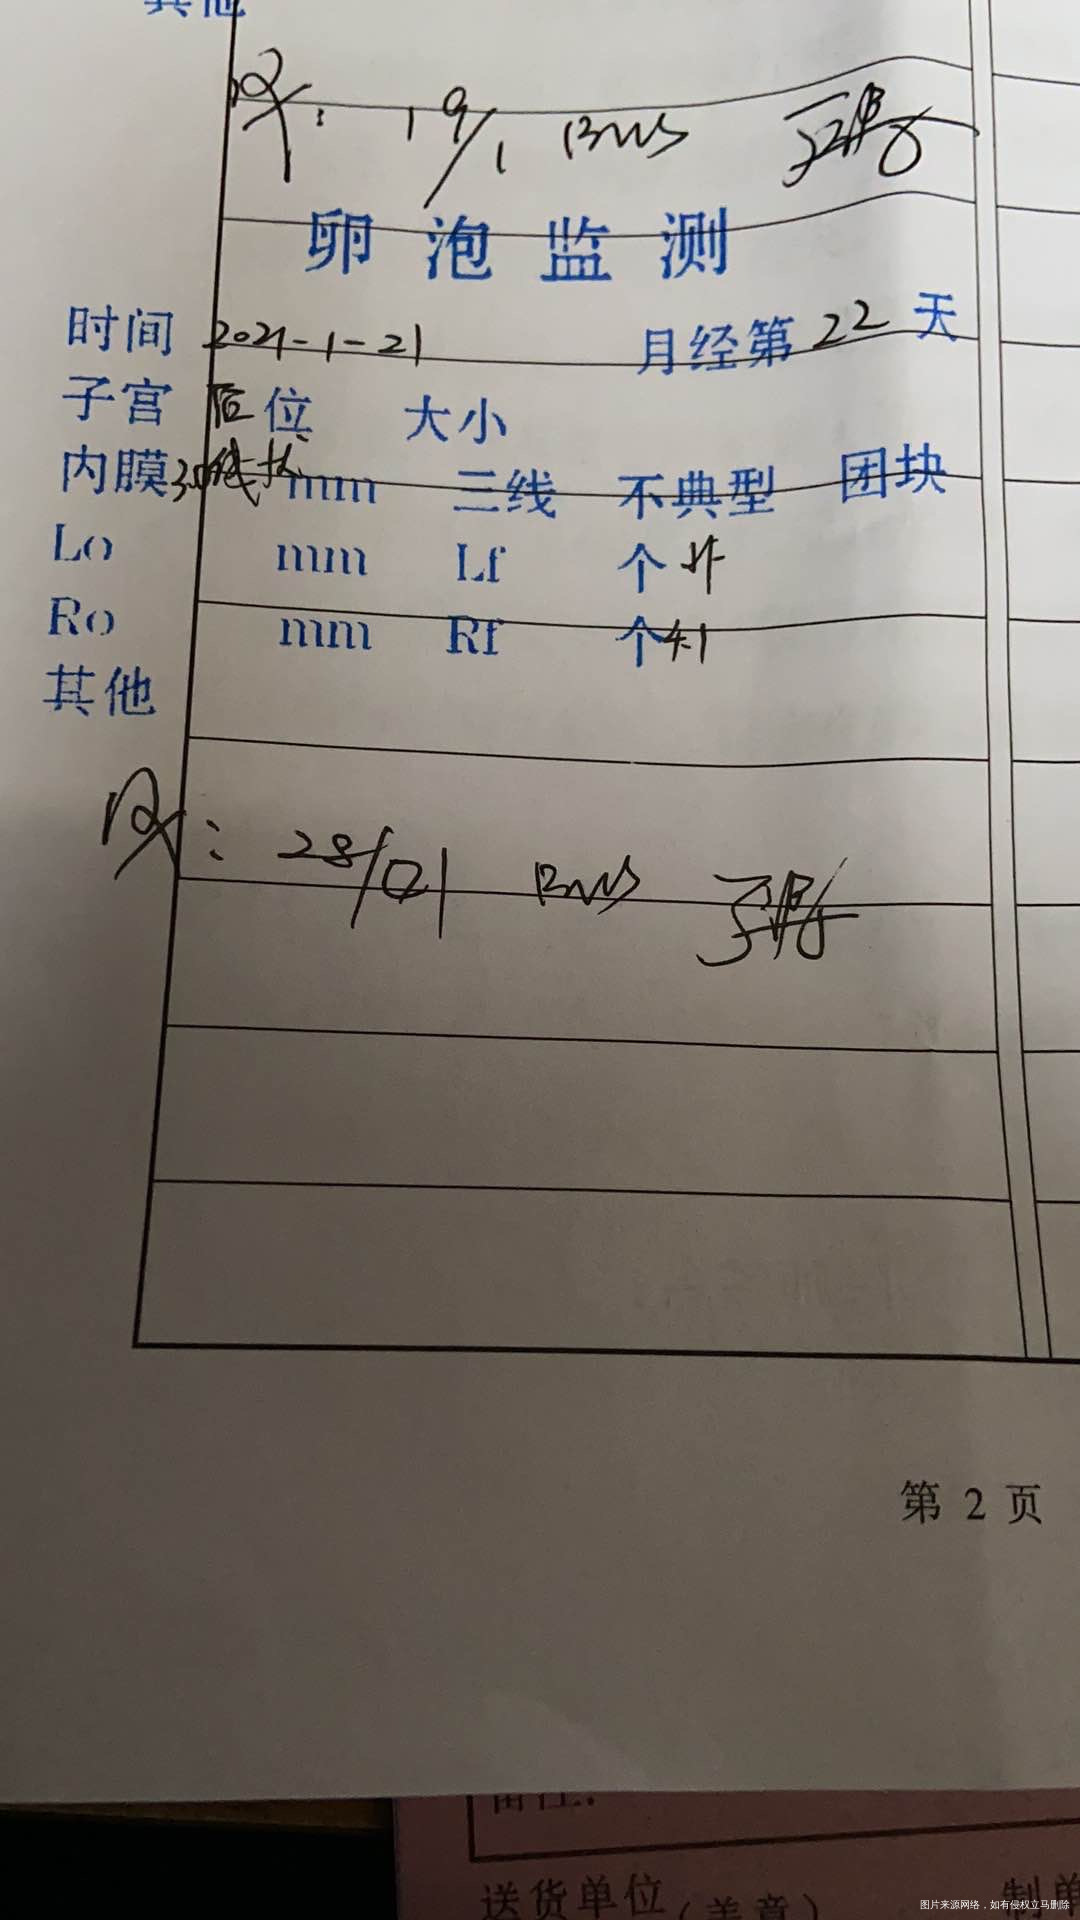 其他
Rx: 19/1 BUS
卵泡监测
时间 2021-1-21 月经第 22 天
子宫 后位 大小
内膜 mm 三线 不典型 团块
Lo mm Lf 个
Ro mm Rf 个 4.1
其他
Rx: 28/01 BUS
第 2 页
备注:
送货单位(盖章) 制单
图片来源网络,如有侵权立马删除